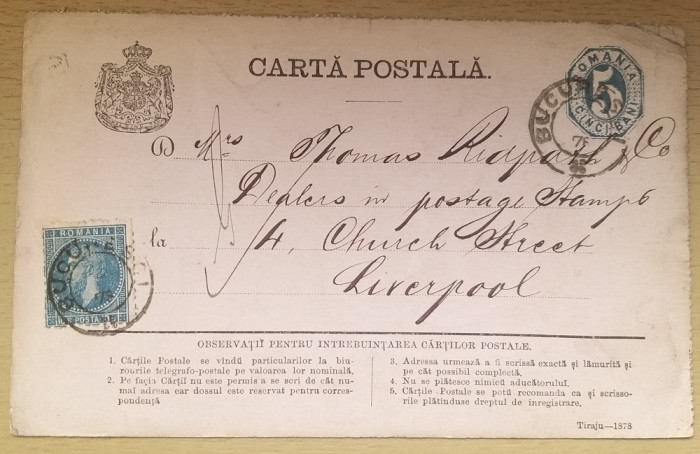 CARTĂ POSTALĂ.
ROMANIA
5
CINCI BANI
BUCUR
D Mrs Thomas Ridpath & Co
Dealers in postage Stamps
la 4, Church Street
Liverpool
ROMANIA
BUCURESCI
POSTA
OBSERVAȚII PENTRU INTREBUINȚAREA CĂRȚILOR POSTALE.
1. Cărțile Postale se vîndŭ particularilor la biu-
rourile telegrafo-postale pe valoarea lor nominală.
2. Pe fația Cărții nu este permis a se scri de cât nu-
mai adresa ear dossul este reservat pentru corres-
pondență
3. Adressa urmează a fi scrissă exactă și lămurită și
pe cât possibil complectă.
4. Nu se plătesce nimicŭ aducĕtoruluĭ.
5. Cărțile Postale se potŭ recomanda ca și scrisso-
rile plătinduse dreptul de inregistrare.
Tiraju—1878